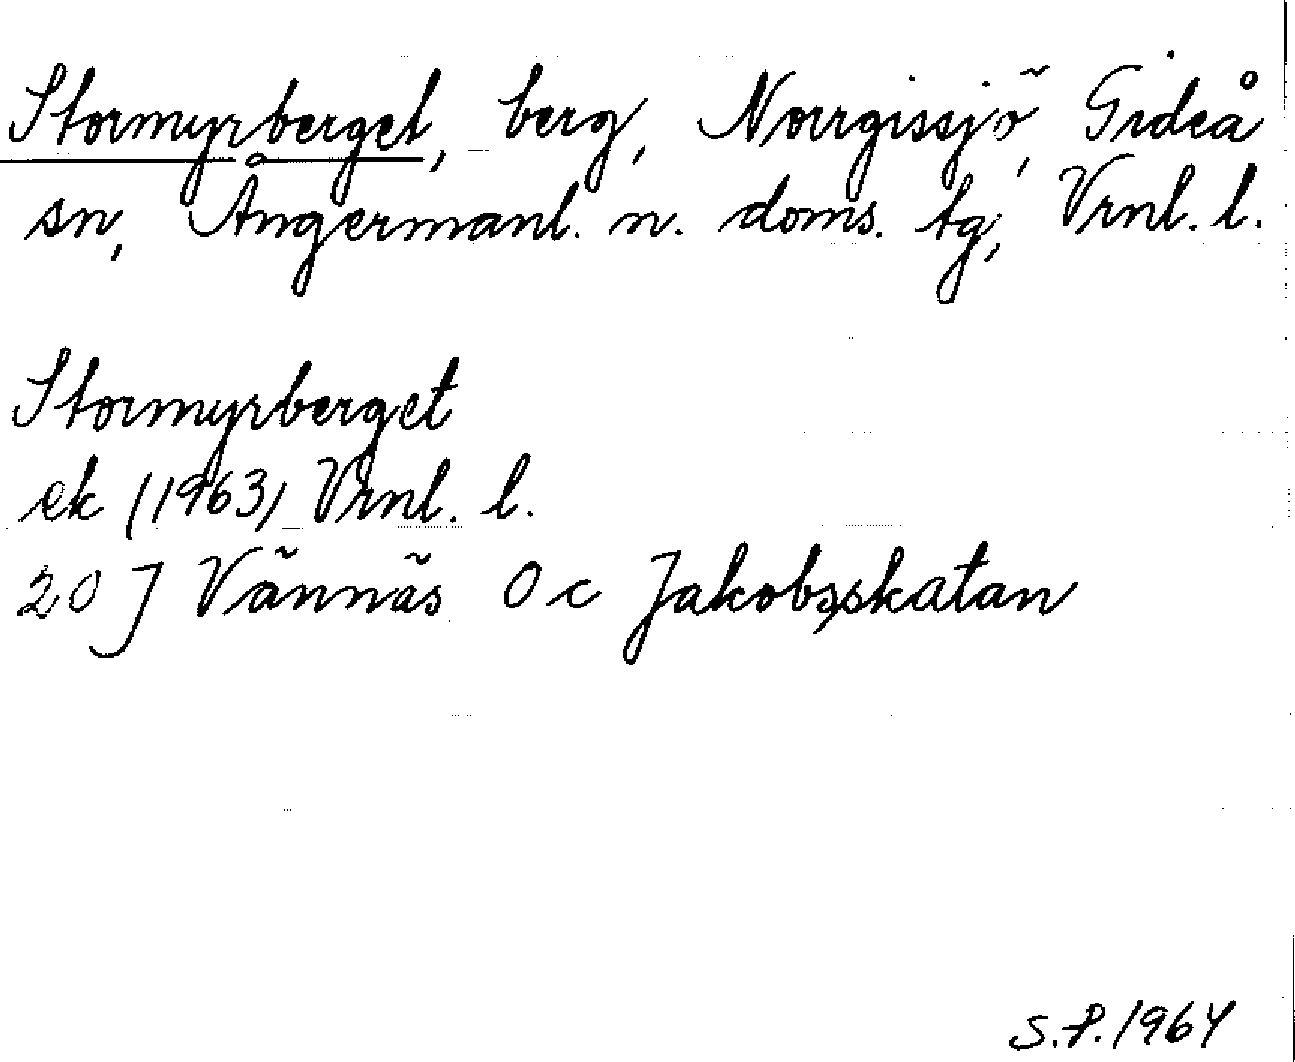 Stormyrberget, berg, Norrgissjö, Gideå
sn, Ångermanl. n. doms. tg, Vrnl. l.
Stormyrberget
ek (1963) Vrnl. l.
20 J Vännäs 0 c Jakobsskatan
S.P. 1964